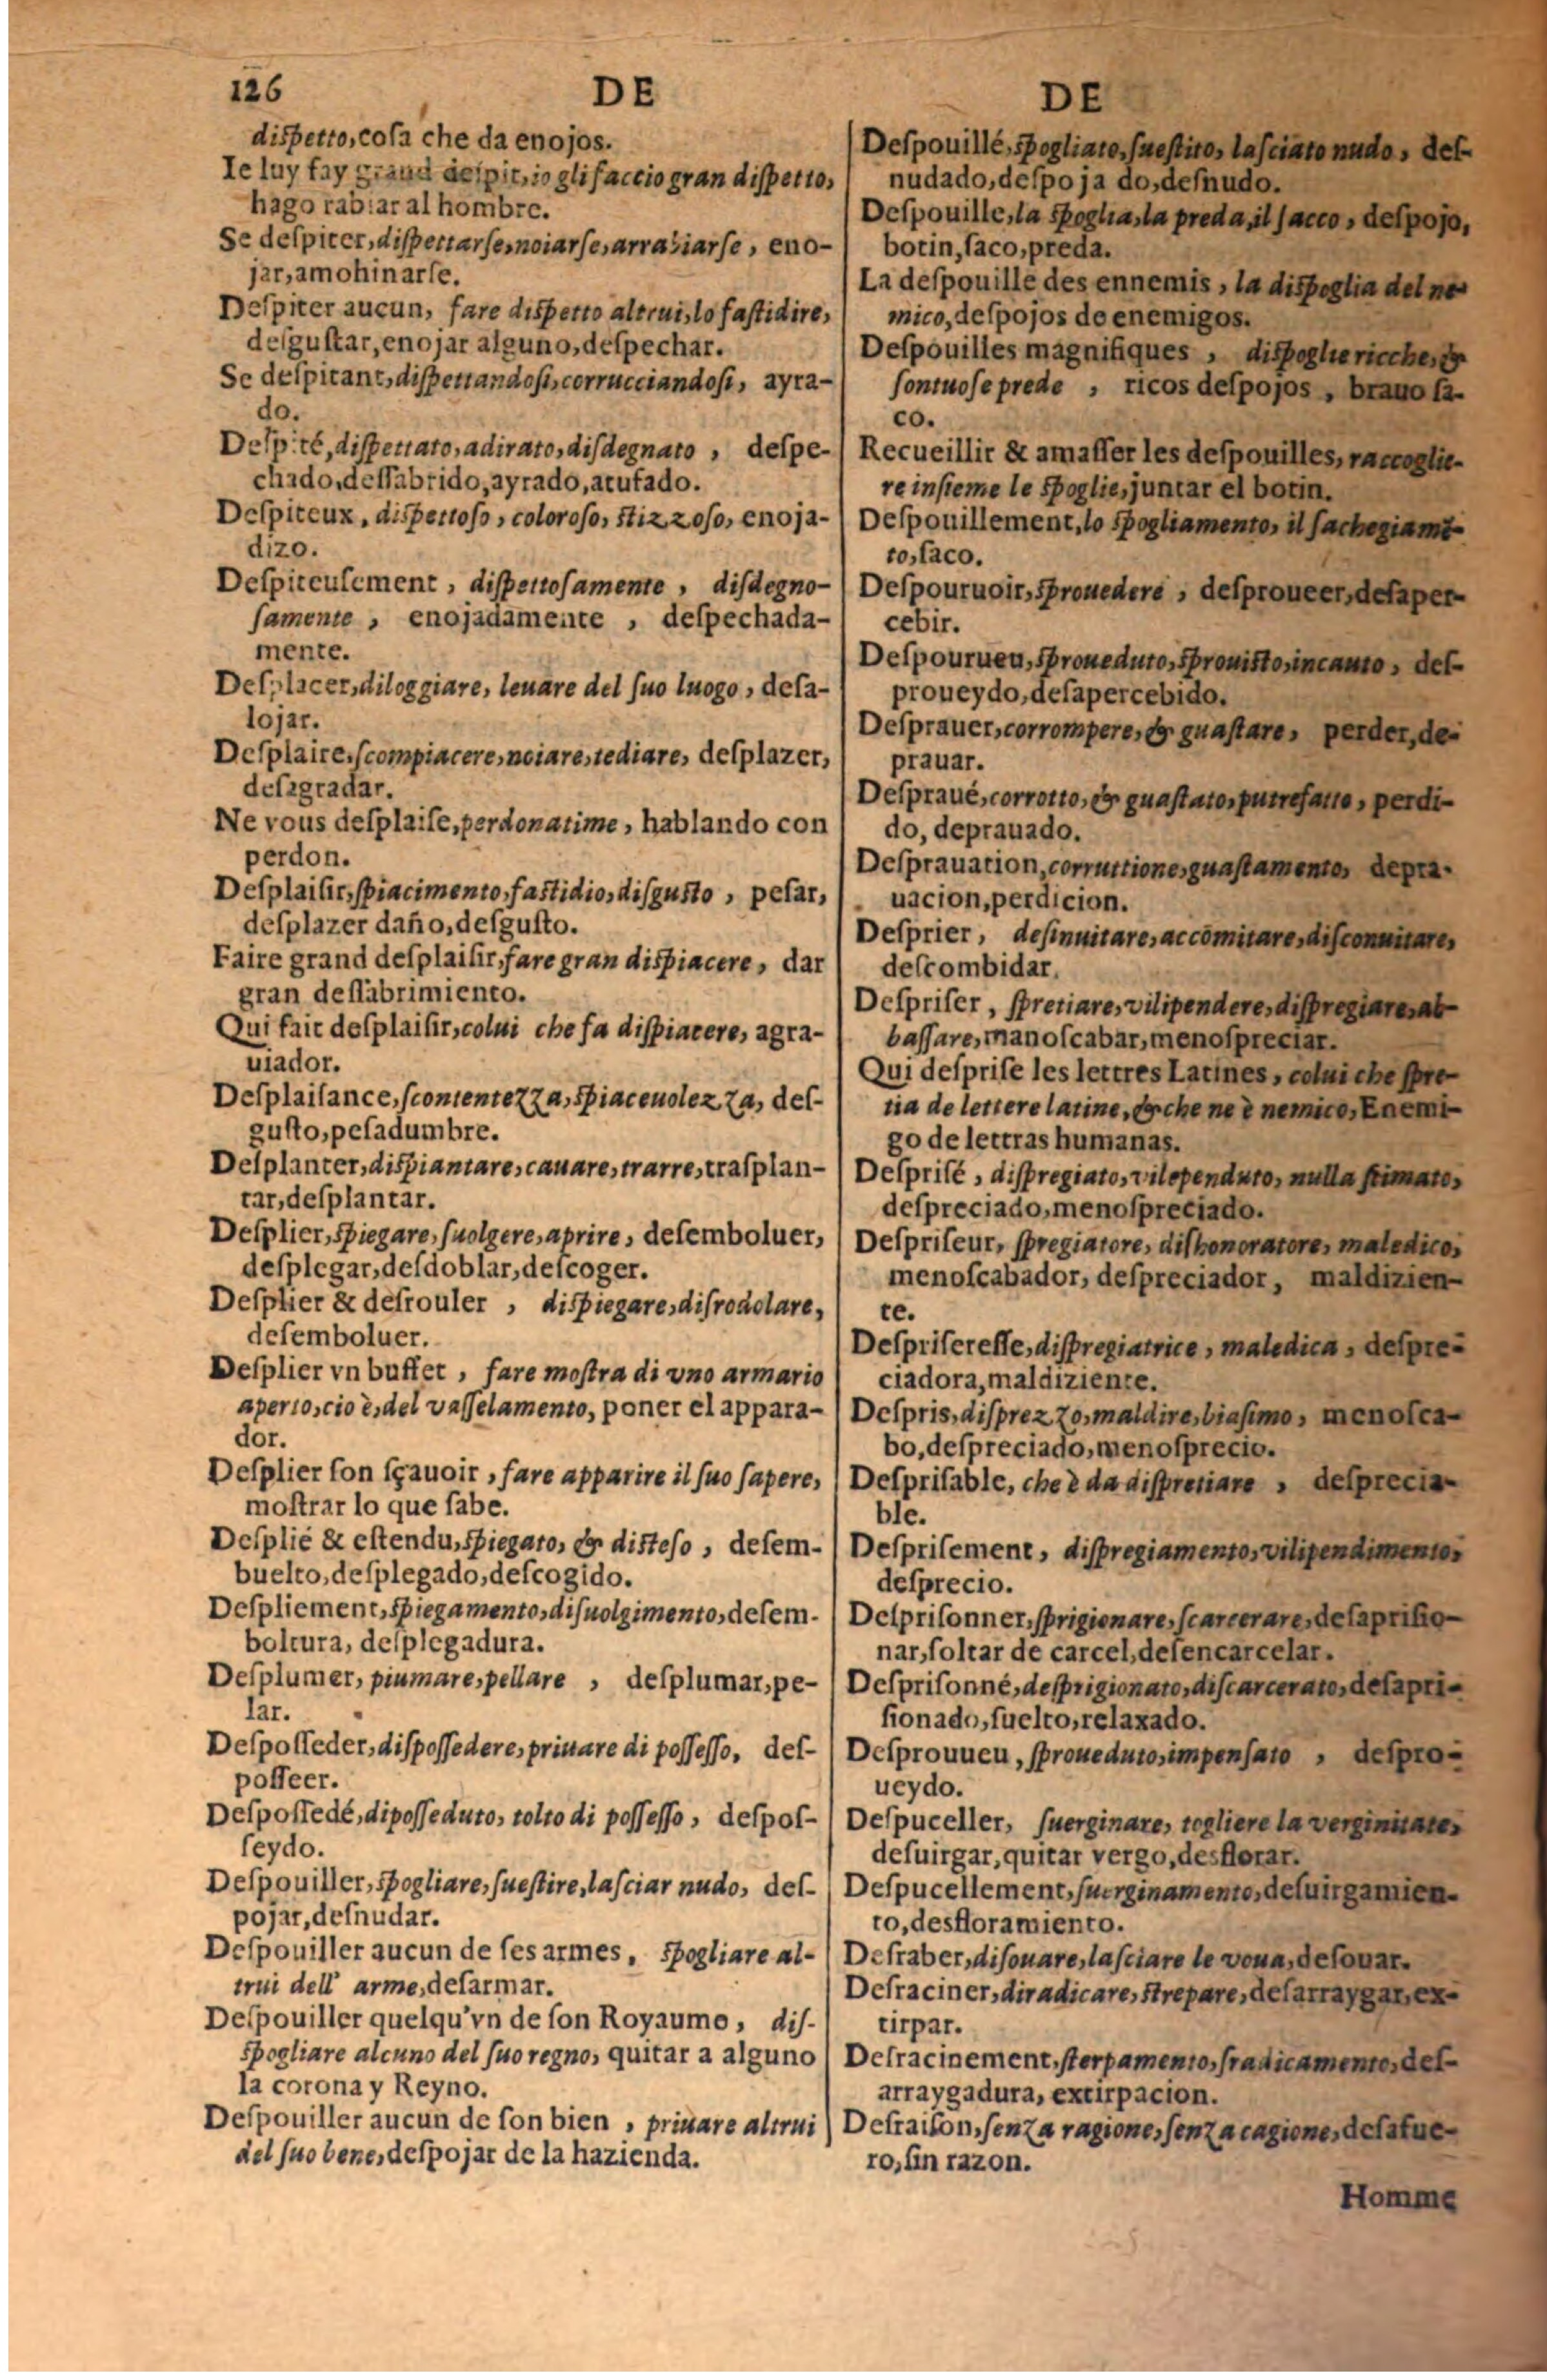 126 DE DE
dispetto, cosa che da enojos.
Ie luy fay grand despit, io gli faccio gran dispetto,
hago rabiar al hombre.
Se despiter, dispettarse, noiarse, arrabiarse, eno-
jar, amohinarse.
Despiter aucun, fare dispetto altrui, lo fastidire,
desgustar, enojar alguno, despechar.
Se despitant, dispettandosi, corrucciandosi, ayra-
do.
Despité, dispettato, adirato, disdegnato, despe-
chado, dessabrido, ayrado, atufado.
Despiteux, dispettoso, coloroso, stizzoso, enoja-
dizo.
Despiteusement, dispettosamente, disdegno-
samente, enojadamente, despechada-
mente.
Desplacer, diloggiare, leuare del suo luogo, desa-
lojar.
Desplaire, scompiacere, noiare, tediare, desplazer,
desagradar.
Ne vous desplaise, perdonatime, hablando con
perdon.
Desplaisir, spiacimento, fastidio, disgusto, pesar,
desplazer daño, desgusto.
Faire grand desplaisir, fare gran dispiacere, dar
gran dessabrimiento.
Qui fait desplaisir, colui che fa dispiacere, agra-
uiador.
Desplaisance, scontentezza, spiaceuolezza, des-
gusto, pesadumbre.
Desplanter, dispiantare, cauare, trarre, trasplan-
tar, desplantar.
Desplier, spiegare, suolgere, aprire, desemboluer,
desplegar, desdoblar, descoger.
Desplier & desrouler, dispiegare, disrodolare,
desemboluer.
Desplier vn buffet, fare mostra di vno armario
aperto, cio è, del vasselamento, poner el appara-
dor.
Desplier son sçauoir, fare apparire il suo sapere,
mostrar lo que sabe.
Desplié & estendu, spiegato, & disteso, desem-
buelto, desplegado, descogido.
Despliement, spiegamento, disuolgimento, desem-
boltura, desplegadura.
Desplumer, piumare, pellare, desplumar, pe-
lar.
Desposseder, dispossedere, priuare di possesso, des-
posseer.
Despossedé, diposseduto, tolto di possesso, despos-
seydo.
Despouiller, spogliare, suestire, lasciar nudo, des-
pojar, desnudar.
Despouiller aucun de ses armes, spogliare al-
trui dell' arme, desarmar.
Despouiller quelqu'vn de son Royaume, dis-
spogliare alcuno del suo regno, quitar a alguno
la corona y Reyno.
Despouiller aucun de son bien, priuare altrui
del suo bene, despojar de la hazienda.
Despouillé, spogliato, suestito, lasciato nudo, des-
nudado, despoja do, desnudo.
Despouille, la spoglia, la preda, il sacco, despojo,
botin, saco, preda.
La despouille des ennemis, la dispoglia del ne-
mico, despojos de enemigos.
Despouilles magnifiques, dispoglie ricche, &
sontuose prede, ricos despojos, brauo sa-
co.
Recueillir & amasser les despouilles, raccoglie-
re insieme le spoglie, juntar el botin.
Despouillement, lo spogliamento, il sachegiamē-
to, saco.
Despouruoir, sprouedere, desproueer, desaper-
cebir.
Despourueu, sproueduto, sprouisto, incauto, des-
proueydo, desapercebido.
Desprauer, corrompere, & guastare, perder, de-
prauar.
Despraué, corrotto, & guastato, putrefatto, perdi-
do, deprauado.
Desprauation, corruttione, guastamento, depra-
uacion, perdicion.
Desprier, desinuitare, accōmitare, disconuitare,
descombidar.
Despriser, spretiare, vilipendere, dispregiare, ab-
bassare, manoscabar, menospreciar.
Qui desprise les lettres Latines, colui che spre-
tia de lettere latine, & che ne è nemico, Enemi-
go de lettras humanas.
Desprisé, dispregiato, vilependuto, nulla stimato,
despreciado, menospreciado.
Despriseur, spregiatore, dishonoratore, maledico,
menoscabador, despreciador, maldizien-
te.
Desprisereffe, dispregiatrice, maledica, despre-
ciadora, maldiziente.
Despris, disprezzo, maldire, biasimo, menosca-
bo, despreciado, menosprecio.
Desprisable, che è da dispretiare, desprecia-
ble.
Desprisement, dispregiamento, vilipendimento,
desprecio.
Desprisonner, sprigionare, scarcerare, desaprisio-
nar, soltar de carcel, desencarcelar.
Desprisonné, desprigionato, discarcerato, desapri-
sionado, suelto, relaxado.
Desprouueu, sproueduto, impensato, despro-
ueydo.
Despuceller, suerginare, togliere la verginitate,
desuirgar, quitar vergo, desflorar.
Despucellement, suerginamento, desuirgamien-
to, desfloramiento.
Desraber, disouare, lasciare le voua, desouar.
Desraciner, diradicare, strepare, desarraygar, ex-
tirpar.
Desracinement, sterpamento, sradicamento, des-
arraygadura, extirpacion.
Desraison, senza ragione, senza cagione, desafue-
ro, sin razon.
Homme